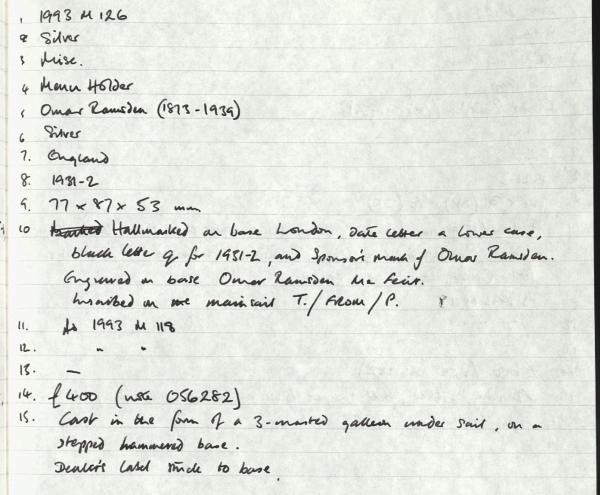 1 1993 M 126
2 Silver
3 Misc.
4 Menu Holder
5 Omar Ramsden (1873-1939)
6 Silver
7. England
8. 1931-2
9. 77 x 87 x 53 mm
10 Hallmarked on base London, date letter a lower case,
black letter q for 1931-2, and Sponsor's mark of Omar Ramsden.
Engraved on base Omar Ramsden Me Fecit.
Inscribed on the mainsail T./FROM/P.
11. As 1993 M 118
12. " "
13. —
14. £400 (note 056282)
15. Cast in the form of a 3-masted galleon under sail, on a
stepped hammered base.
Dealer's label stuck to base.